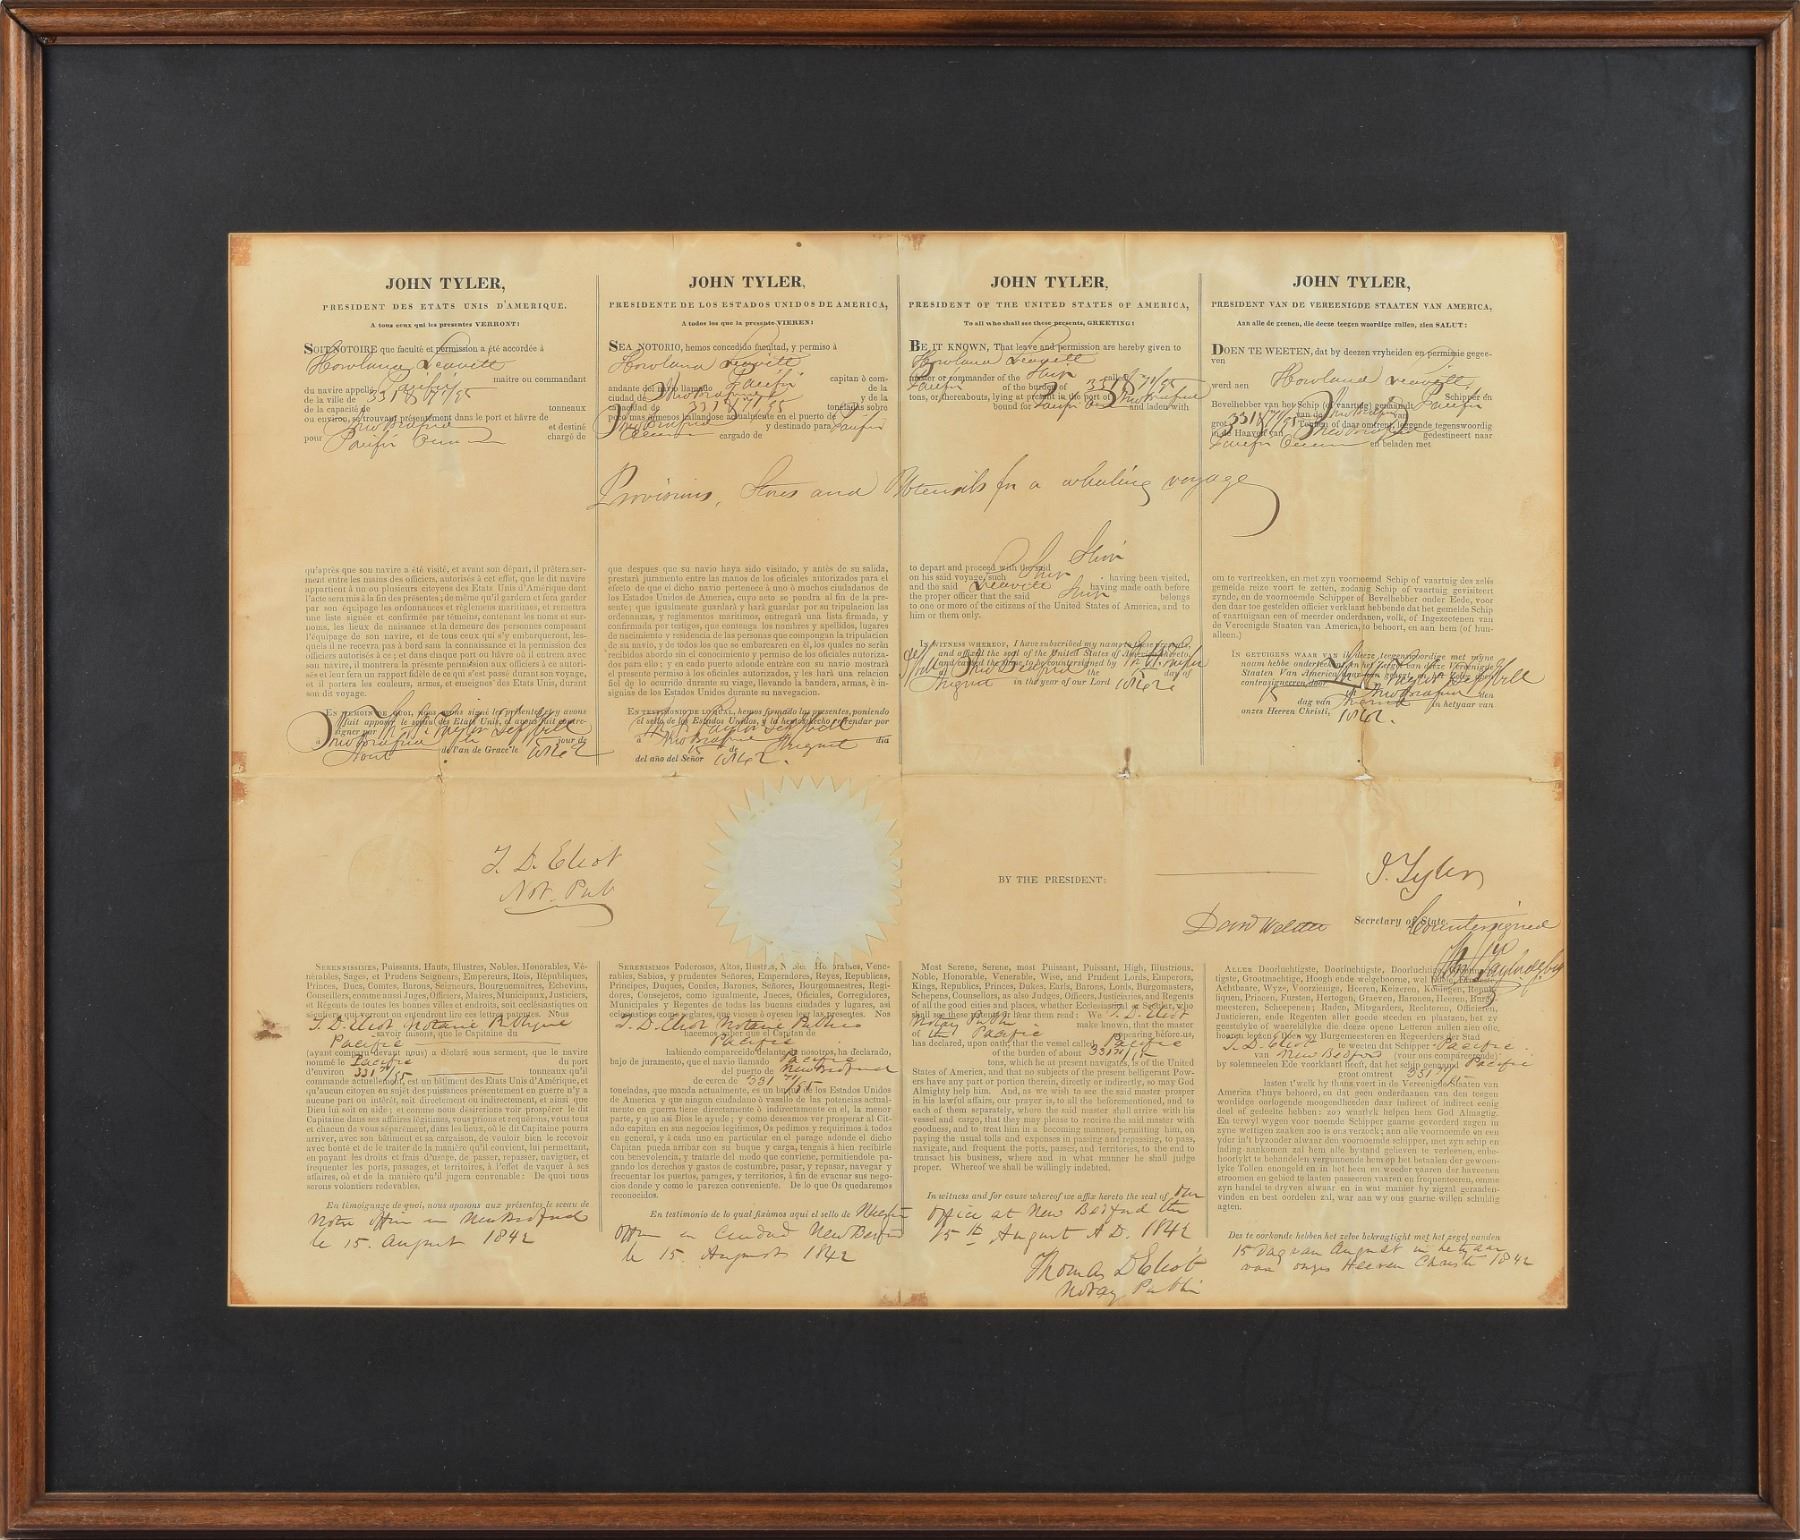 JOHN TYLER,
PRESIDENT DES ETATS UNIS D'AMERIQUE.
A tous ceux qui les presentes VERRONT:
SOIT NOTOIRE que faculté et permission a été accordée à
Howland Leavett
maitre ou commandant
du navire appelé Pacific
de la ville de 331 & 71/95
de la capacité de tonneaux
ou environ, se trouvant présentement dans le port et hâvre de
New Bedford et destiné
pour Pacific Ocean chargé de
JOHN TYLER,
PRESIDENTE DE LOS ESTADOS UNIDOS DE AMERICA,
A todos los que la presente VIEREN:
SEA NOTORIO, hemos concedido facultad, y permiso à
Howland Leavett
capitan ò com-
andante del navio llamado Pacific de la
ciudad de New Bedford y de la
capacidad de 331 & 71/95 toneladas sobre
poco mas ò menos hallandose actualmente en el puerto de
New Bedford y destinado para Pacific
Ocean cargado de
JOHN TYLER,
PRESIDENT OF THE UNITED STATES OF AMERICA,
To all who shall see these presents, GREETING:
BE IT KNOWN, That leave and permission are hereby given to
Howland Leavett
master or commander of the Ship called
Pacific of the burden of 331 & 71/95
tons, or thereabouts, lying at present in the port of New Bedford
bound for Pacific Ocean and laden with
JOHN TYLER,
PRESIDENT VAN DE VEREENIGDE STAATEN VAN AMERICA,
Aan alle de geenen, die deeze teegen woordige zullen, zien SALUT:
DOEN TE WEETEN, dat by deezen vryheiden en permissie gegee-
ven
werd aen Howland Leavett,
Schipper en
Bevelhebber van het Schip (of vaartuig) genaamt Pacific
van de New Bedford
groot 331 & 71/95 Tonnen of daar omtrent, leggende tegenswoordig
in de Haaven van New Bedford gedestineert naar
Pacific Ocean en beladen met
Provisions, Stores and Utensils for a whaling voyage
qu'après que son navire a été visité, et avant son départ, il prêtera ser-
ment entre les mains des officiers, autorisés à cet effet, que le dit navire
appartient à un ou plusieurs citoyens des Etats Unis d'Amérique dont
l'acte sera mis à la fin des présentes; de même qu'il gardera et fera garder
par son équipage les ordonnances et règlemens maritimes, et remettra
une liste signée et confirmée par témoins, contenant les noms et sur-
noms, les lieux de naissance et la demeure des personnes composant
l'équipage de son navire, et de tous ceux qui s'y embarqueront, les-
quels il ne recevra pas à bord sans la connaissance et la permission des
officiers autorisés à ce; et dans chaque port ou hâvre où il entrera avec
son navire, il montrera la présente permission aux officiers à ce autori-
sés et leur fera un rapport fidèle de ce qui s'est passé durant son voyage,
et il portera les couleurs, armes, et enseignes des Etats Unis, durant
son dit voyage.
EN TEMOIN DE QUOI, nous avons signé les présentes, et y avons
fait apposer le sceau des Etats Unis, et avons fait contre-
signer par
à New Bedford le 15 jour de
Aout de l'an de Grace le 1842
que despues que su navio haya sido visitado, y antès de su salida,
prestará juramento entre las manos de los oficiales autorizados para el
efecto de que el dicho navio pertenece à uno ò muchos ciudadanos de
los Estados Unidos de America, cuyo acto se pondra al fin de la pre-
sente; que igualmente guardarà y harà guardar por su tripulacion las
ordenanzas, y reglamentos maritimos, entregará una lista firmada, y
confirmada por testigos, que contenga los nombres y apellidos, lugares
de nacimiento y residencia de las personas que compongan la tripulacion
de su navio, y de todos los que se embarcaren en èl, los quales no seràn
recibidos abordo sin el conocimiento y permiso de los oficiales autoriza-
dos para ello; y en cada puerto adonde entrare con su navio mostrará
el presente permiso à los oficiales autorizados, y les harà una relacion
fiel de lo ocurrido durante su viage, llevando la bandera, armas, è in-
signias de los Estados Unidos durante su navegacion.
EN TESTIMONIO DE LO QUAL, hemos firmado las presentes, poniendo
el sello de los Estados Unidos, y la hemos hecho refrendar por
à New Bedford dia
15 de August
del año del Señor 1842.
to depart and proceed with the said Ship
on his said voyage, such Ship having been visited,
and the said Leavett having made oath before
the proper officer that the said Ship belongs
to one or more of the citizens of the United States of America, and to
him or them only.
IN WITNESS WHEREOF, I have subscribed my name to these presents,
and affixed the seal of the United States of America thereto,
and caused the same to be countersigned by
at New Bedford the 15 day of
August in the year of our Lord 1842
om te vertreekken, en met zyn voornoemd Schip of vaartuig des zelfs
gemelde reize voort te zetten, zodanig Schip of vaartuig gevisiteert
zynde, en de voornoemde Schipper of Bevelhebber onder Eede, voor
den daar toe gestelden officier verklaart hebbende dat het gemelde Schip
of vaartuig aan een of meerder onderdanen, volk, of Ingezetenen van
de Vereenigde Staaten van America, to behoort, en aan hem (of hun-
alleen.)
IN GETUIGENS WAAR VAN ik deeze teegenswoordige met myne
naam hebbe onderteekent en het Zegel van deeze Vereenigde
Staaten Van America daar aan gehegt, en het Zelve doen
contrasigneeren door
in New Bedford den
15 dag van August in het yaar van
onzes Heeren Christi, 1842.
T. D. Eliot
Not. Pub
BY THE PRESIDENT:
J. Tyler
Danl Webster Secretary of State.
Countersigned
SERENISSIMES, Puissants, Hauts, Illustres, Nobles, Honorables, Vé-
nérables, Sages, et Prudens Seigneurs, Empereurs, Rois, Républiques,
Princes, Ducs, Comtes, Barons, Seigneurs, Bourguemaitres, Echevins,
Conseillers, comme aussi Juges, Officiers, Maires, Municipaux, Justiciers,
et Régents de toutes les bonnes villes et endroits, soit ecclésiastiques ou
séculiers qui verront ou entendront lire ces lettres patentes. Nous
T. D. Eliot Notaire Publique
savoir faisons, que le Capitaine du
Pacific
(ayant comparu devant nous) a déclaré sous serment, que le navire
nommé le Pacific du port
d'environ 331 71/95 tonneaux qu'il
commande actuellement, est un bâtiment des Etats Unis d'Amérique, et
qu'aucun citoyen ou sujet des puissances présentement en guerre n'y a
aucune part ou intérêt, soit directement ou indirectement, et ainsi que
Dieu lui soit en aide; et comme nous désirerions voir prospérer le dit
Capitaine dans ses affaires légitimes, vous prions et requérons, vous tous
et chacun de vous séparément, dans les lieux, où le dit Capitaine pourra
arriver, avec son bâtiment et sa cargaison, de vouloir bien le recevoir
avec bonté et de le traiter de la manière qu'il convient, lui permettant,
en payant les droits et frais d'usage, de passer, repasser, naviguer, et
fréquenter les ports, passages, et territoires, à l'effet de vaquer à ses
affaires, où et de la manière qu'il jugera convenable: De quoi nous
serons volontiers redevables.
En témoignage de quoi, nous aposons aux présentes le sceau de
Notre office en New Bedford
le 15. August 1842
SERENISIMOS Poderosos, Altos, Ilustres, Nobles, Honorables, Vene-
rables, Sabios, y prudentes Señores, Emperadores, Reyes, Republicas,
Principes, Duques, Condes, Barones, Señores, Bourgmaestres, Regi-
dores, Consejeros, como igualmente, Jueces, Oficiales, Corregidores,
Municipales y Regentes de todas las buenas ciudades y lugares, asi
eclesiasticos como seglares, que viesen ò oyesen leer las presentes. Nos
T. D. Eliot Notario Publico
hacemos saber que el Capitan de
Pacific
habiendo comparecido delante de nosotros, ha declarado,
bajo de juramento, que el navio llamado Pacific
del puerto de New Bedford
de cerca de 331 71/95
toneladas, que manda actualmente, es un buque de los Estados Unidos
de America y que ningun ciudadano ò vasallo de las potencias actual-
mente en guerra tiene directamente ò indirectamente en el, la menor
parte, y que asi Dios le ayude; y como deseamos ver prosperar al Cit-
ado capitan en sus negocios legitimos, Os pedimos y requirimos à todos
en general, y à cada uno en particular en el parage adonde el dicho
Capitan pueda arribar con su buque y carga, tengais à bien recibirle
con benevolencia, y tratarle del modo que conviene, permitiendole pa-
gando los derechos y gastos de costumbre, pasar, y repasar, navegar y
frecuentar los puertos, parages, y territorios, à fin de evacuar sus nego-
cios donde y como le parezca conveniente. De lo que Os quedaremos
reconocidos.
En testimonio de lo qual fixâmos aqui el sello de
offn en Ciudad New Bedford
le 15. August 1842
Most Serene, Serene, most Puissant, Puissant, High, Illustrious,
Noble, Honorable, Venerable, Wise, and Prudent Lords, Emperors,
Kings, Republics, Princes, Dukes, Earls, Barons, Lords, Burgomasters,
Schepens, Counsellors, as also Judges, Officers, Justiciaries, and Regents
of all the good cities and places, whether Ecclesiastical or Secular, who
shall see these presents or hear them read: We T. D. Eliot
Notary Public make known, that the master
of the Pacific appearing before us,
has declared, upon oath, that the vessel called Pacific
of the burden of about 331 71/95
tons, which he at present navigates, is of the United
States of America, and that no subjects of the present belligerant Pow-
ers have any part or portion therein, directly or indirectly, so may God
Almighty help him. And, as we wish to see the said master prosper
in his lawful affairs, our prayer is, to all the beforementioned, and to
each of them separately, where the said master shall arrive with his
vessel and cargo, that they may please to receive the said master with
goodness, and to treat him in a becoming manner, permitting him, on
paying the usual tolls and expenses in passing and repassing, to pass,
navigate, and frequent the ports, passes, and territories, to the end to
transact his business, where and in what manner he shall judge
proper. Whereof we shall be willingly indebted.
In witness and for cause whereof we affix hereto the seal of Our
Office at New Bedford this
15th August A D. 1842
Thomas D Eliot
Notary Public
ALLER Doorluchtigste, Doorluchtigste, Doorluchtige, Grootmag-
tigste, Grootmachtige, Hoogh ende welgebooren, wel Edele, Erntfeste,
Achtbaare, Wyze, Voorzienige, Heeren, Keizeren, Koningen, Repub-
fiquen, Princen, Fursten, Hertogen, Graeven, Baronen, Heeren, Burge-
meesteren, Scheepenen; Raden, Mitsgarders, Rechteren, Officieren,
Justicieren, ende Regenten aller goede steden en plaatsen, het zy
geestelyke of waereldlyke die deeze opene Letteren zullen zien ofte,
hooren leezen; doen wy Burgemeesteren en Regeerders der Stad
T. D. Eliot te weeten dat Schipper Pacific
van New Bedford (voor ons compareerende)
by solemneelen Ede voorklaart heeft, dat het schip genaamd Pacific
groot omtrent 331 71/95
lasten t'welk hy thans voert in de Vereenigde Staaten van
America t'huys behoord, en dat geen onderdaanen van den teegen
wordige oorlogende moogendheeden daar indirect of indirect eenig
deel of gedeelte hebben: zoo waarlyk helpen hem God Almagtig.
En terwyl wygen voor noemde Schipper gaarne gevorderd zagen in
zyne wettigen zaaken zoo is ons verzoek; aan alle voornoemde en een
yder in't byzonder alwaar den voornoemde schipper, met zyn schip en
lading aankomen zal hem alle bystand gelieven te verleenen, enbe-
hoorlykt te behandelen vergunnende hem op het betaalen der gewoon-
lyke Tollen enongeld en in het heen en weeder vaaren der havenen
stroomen en gebied te laaten passeeren vaaren en frequenteeren, omme
zyn handel te dryven alwaar en in wat manier hy zigzal geraaden-
vinden en best oordelen zal, war aan wy ons gaarne willen schuldig
agten.
Des te oorkonde hebben het zelve bekragtight met het zegel vanden
15 dag van August in het yaar
van onzes Heeren Christi 1842